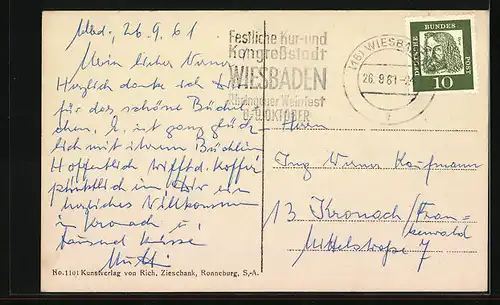 Wbd., 26.9.61
Mein lieber Werner
Herzlich danke ich Dir
für das schöne Büchel-
chen. L. ist ganz glück-
lich mit ihrem Büchlein
Hoffentlich trifft d. Koffer
pünktlich ein. Dir ein
herzliches Willkommen
in Kronach u.
tausend Küsse
Mutti
Festliche Kur-und
Kongreßstadt
WIESBADEN
Rheingauer Weinfest
OKTOBER
(16) WIESB
26.9.61
DEUTSCHE BUNDES POST
10
Herrn
Ing Werner Kaufmann
13 Kronach/Fran-
kenwald
Mittelstraße 7
No. 1101 Kunstverlag von Rich. Zieschank, Ronneburg, S.-A.